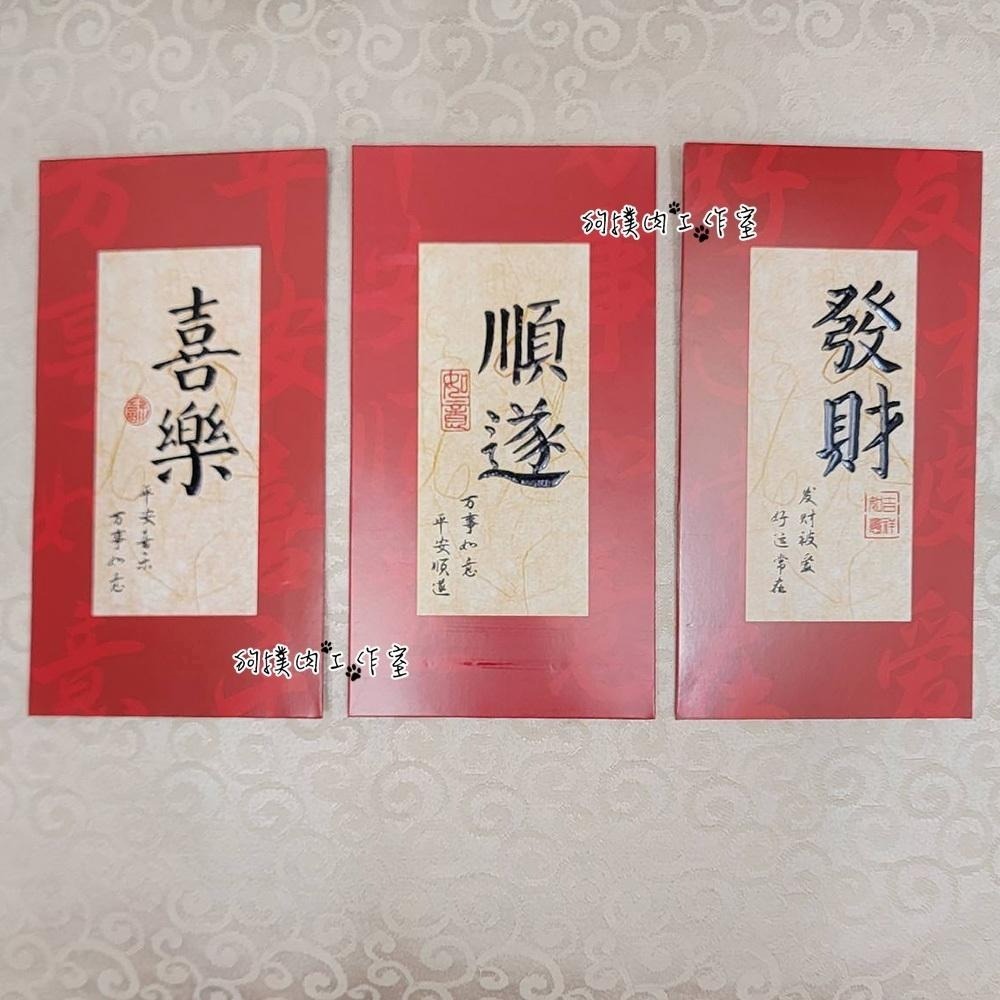 喜樂
平安喜乐
万事如意
順遂
如意
万事如意
平安順遂
發財
吉祥
如意
发财被爱
好运常在
狗撲肉工作室
狗撲肉工作室